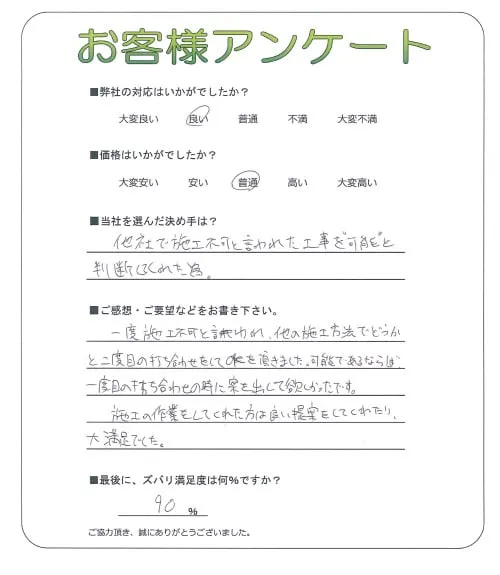 お客様アンケート
■弊社の対応はいかがでしたか？
大変良い 良い 普通 不満 大変不満
■価格はいかがでしたか？
大変安い 安い 普通 高い 大変高い
■当社を選んだ決め手は？
他社で施工不可と言われた工事を"可能"と
判断してくれた為。
■ご感想・ご要望などをお書き下さい。
一度施工不可と言われ、他の施工方法でどうか
と二度目の打ち合わせをしてOKを頂きました。可能であるならば、
一度目の打ち合わせの時に案を出して欲しかったです。
施工の作業をしてくれた方は良い提案をしてくれたり、
大満足でした。
■最後に、ズバリ満足度は何%ですか？
90 %
ご協力頂き、誠にありがとうございました。